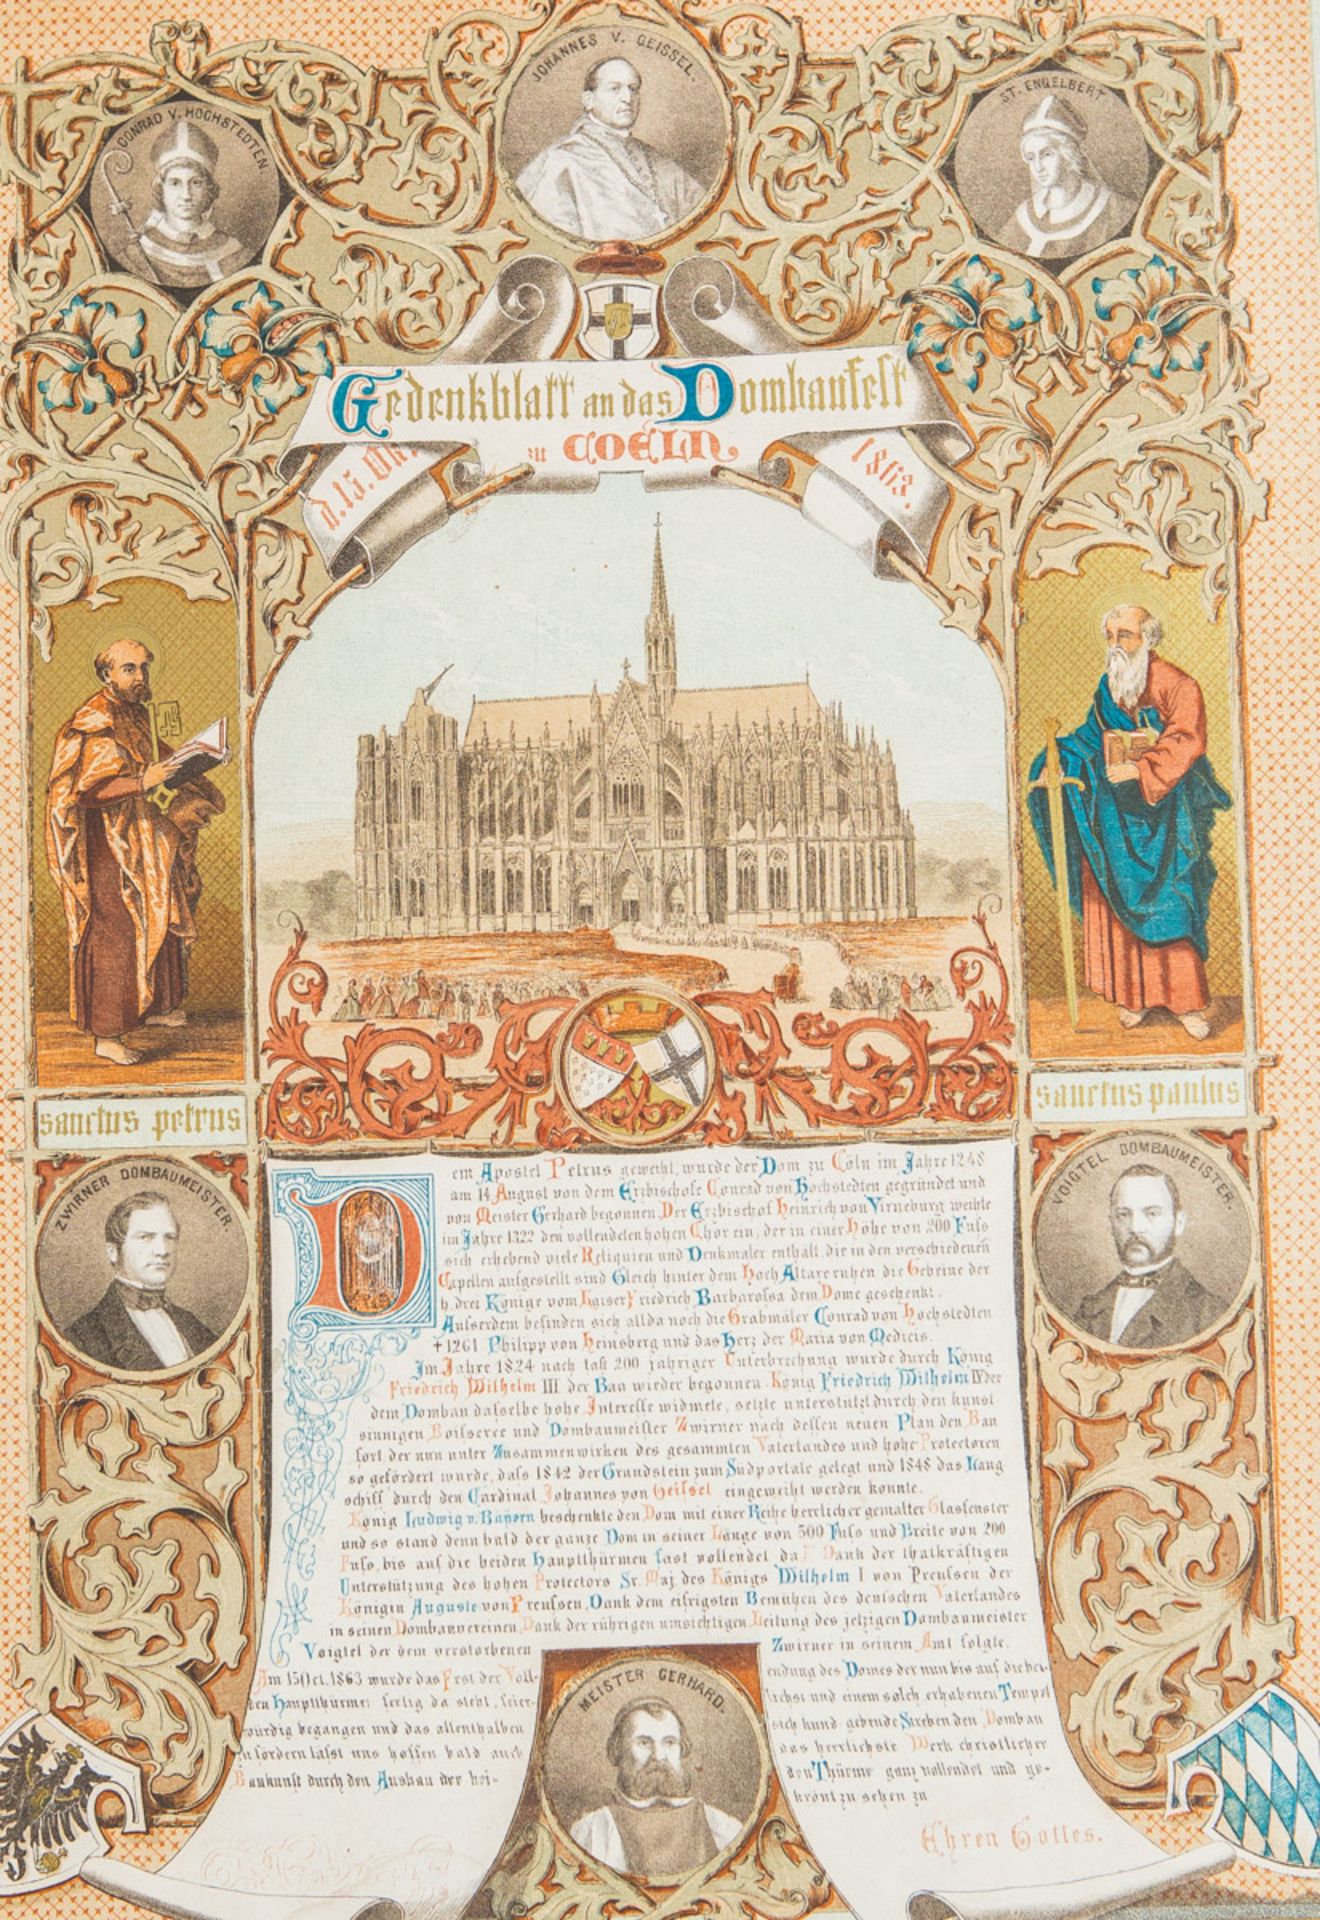 JOHANNES V. GEISSEL.
CONRAD V. HOCHSTEDTEN
ST. ENGELBERT
Gedenkblatt an das Dombaufest
zu COELN.
d. 15. Okt.
1863.
sanctus petrus
sanctus paulus
ZWIRNER DOMBAUMEISTER.
VOIGTEL DOMBAUMEISTER.
Dem Apostel Petrus geweiht, wurde der Dom zu Cöln im Jahre 1248
am 14 August von dem Erzbischofe Conrad von Hochstedten gegründet und
von Meister Gerhard begonnen. Der Erzbischof Heinrich von Virneburg weihte
im Jahre 1322 den vollendeten hohen Chor ein, der in einer Höhe von 200 Fuſs
sich erhebend viele Reliquien und Denkmaler enthält, die in den verschiedenen
Capellen aufgestellt sind Gleich hinter dem Hoch Altare ruhen die Gebeine der
h. drei Könige vom Kaiser Friedrich Barbarossa dem Dome geschenkt.
Auſserdem befinden sich allda noch die Grabmäler Conrad von Hochstedten
+ 1261 Philipp von Heinsberg und das Herz der Maria von Medicis.
Im Jahre 1824 nach faſt 200 jähriger Unterbrechung wurde durch König
Friedrich Wilhelm III. der Bau wieder begonnen. König Friedrich Wilhelm IV der
dem Dombau daſselbe hohe Intereſſe widmete, setzte unterstützt durch den kunst
sinnigen Boisseree und Dombaumeiſter Zwirner nach deſſen neuen Plan den Bau
fort der nun unter Zusammenwirken des gesammten Vaterlandes und hohe Protectoren
so gefördert wurde, daſs 1842 der Grundstein zum Südportale gelegt und 1848 das Lang
schiff durch den Cardinal Johannes von Geiſsel eingeweiht werden konnte.
König Ludwig v. Bayern beschenkte den Dom mit einer Reihe herrlicher gemalter Glasfenster
und so stand denn bald der ganze Dom in seiner Länge von 500 Fuſs und Breite von 200
Fuſs, bis auf die beiden Hauptthürmen fast vollendet da Dank der thatkräftigen
Unterstützung des hohen Protectors Sr. Maj. des Königs Wilhelm I von Preuſsen der
Königin Auguste von Preuſsen, Dank dem eifrigsten Bemühen des deutschen Vaterlandes
in seinen Dombauvereinen, Dank der rührigen umsichtigen Leitung des jetzigen Dombaumeister
Voigtel der dem verstorbenen Zwirner in seinem Amt folgte.
Am 15 Oct. 1863 wurde das Fest der Voll-
endung des Domes der nun bis auf die bei-
den Hauptthürme fertig da steht, feier-
lichst und einem solch erhabenen Tempel
würdig begangen und das allenthalben
sich kund gebende Streben den Dombau
zu fördern läſst uns hoffen bald auch
das herrlichste Werk christlicher
Baukunſt durch den Ausbau der bei-
den Thürme ganz vollendet und ge-
krönt zu sehen zu
Ehren Gottes.
MEISTER GERHARD.